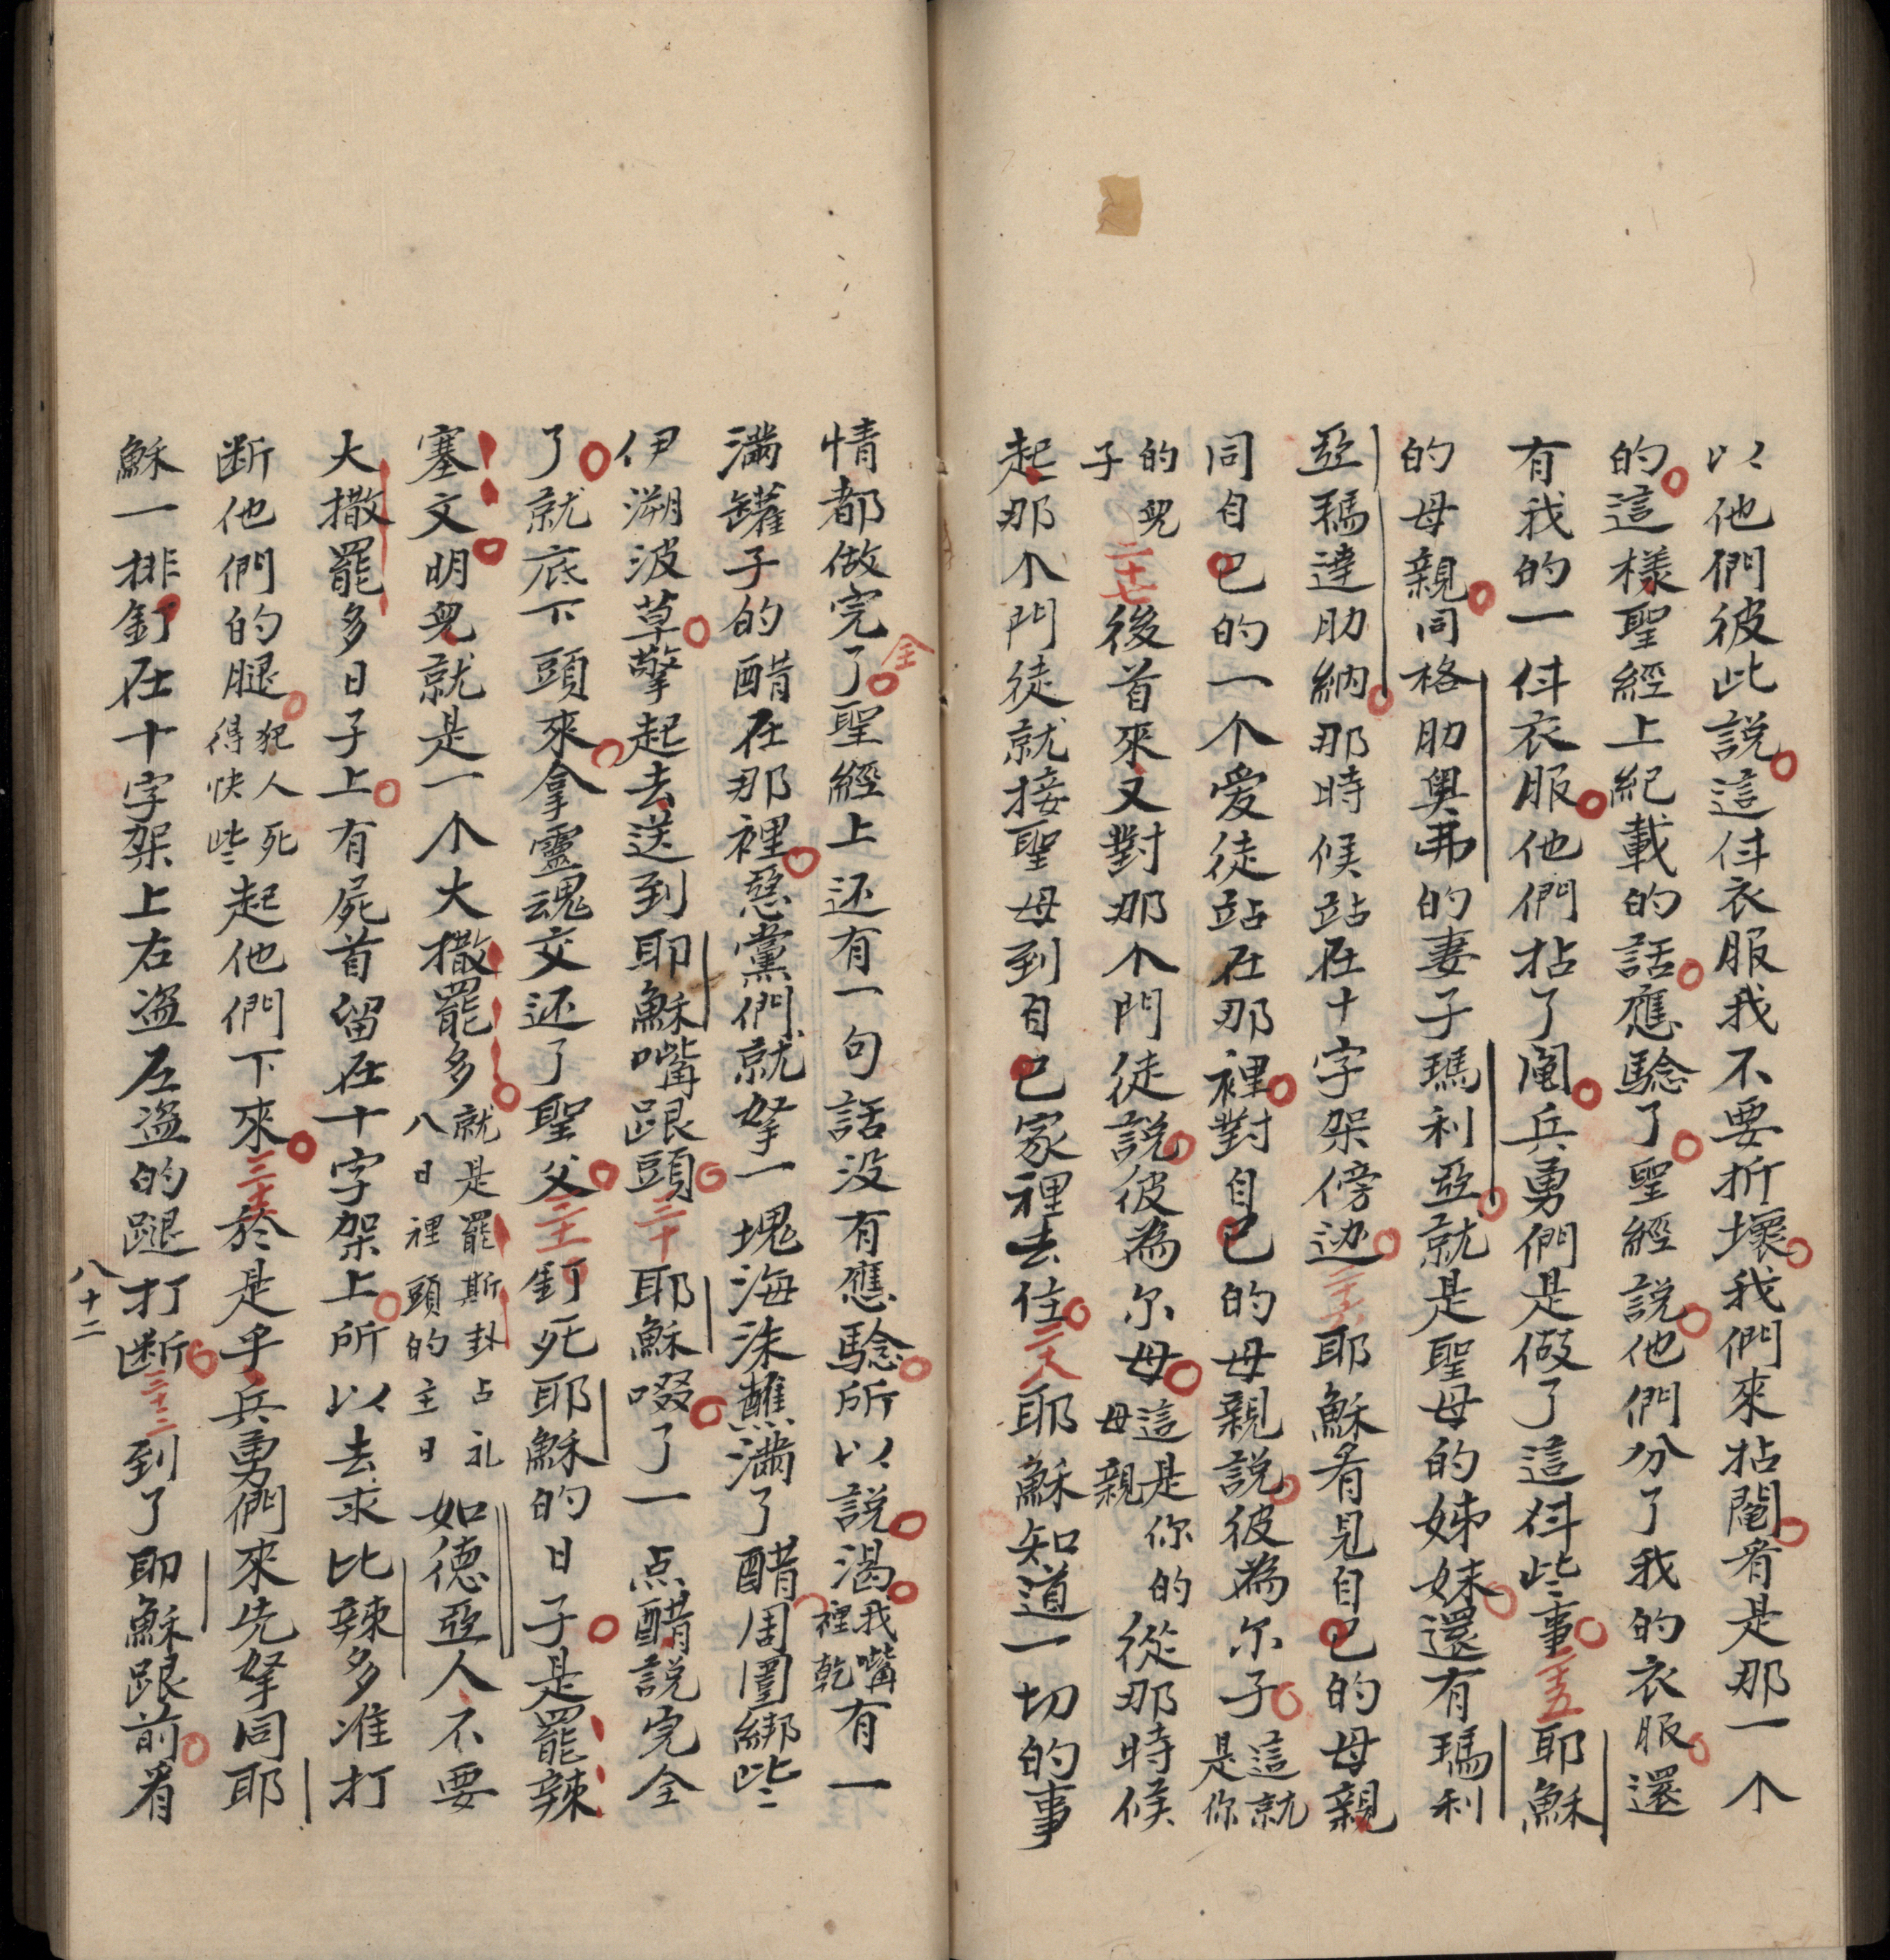 以他們彼此説這件衣服我不要折壞我們來拈鬮看是那一个
的這樣聖經上紀載的話應騐了聖經説他們分了我的衣服還
有我的一件衣服他們拈了鬮兵勇們是做了這件些事二十五耶穌
的母親同格肋奧弗的妻子瑪利亞就是聖母的姊妹還有瑪利
亞瑪達肋納那時候站在十字架傍边二十六耶穌看見自己的母親
同自己的一个爱徒站在那裡對自己的母親説彼為尔子這就是你
的兒子二十七後首來又對那个門徒説彼為尔母這是你的母親從那時候
起那个門徒就接聖母到自己家裡去住二十八耶穌知道一切的事
情都做完了全聖經上还有一句話没有應騐所以説渴我嘴裡乾有一
滿罐子的醋在那裡惡黨們就拏一塊海沬蘸滿了醋周圍綁些
伊溯波草擎起去送到耶穌嘴跟頭三十耶穌啜了一点醋説完全
了就底下頭來拿靈魂交还了聖父三十一釘死耶穌的日子是罷辣
塞文明兒就是一个大撒罷多就是罷斯卦占礼八日裡頭的主日如德亞人不要
大撒罷多日子上有屍首留在十字架上所以去求比辣多准打
断他們的腿犯人死得快些起他們下來三十二於是乎兵勇們來先拏同耶
穌一排釘在十字架上右盗左盗的腿打断三十三到了耶穌跟前看
八十二